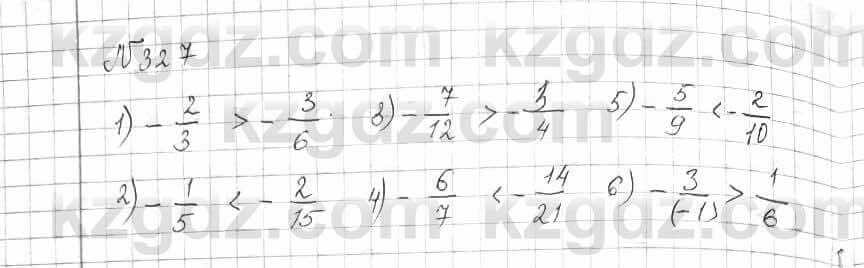 kzgdz.com kzgdz.com
№327
1) -2/3 > -3/6 3) -7/12 > -3/4 5) -5/9 < -2/10
kzgdz.com kzgdz.com
2) -1/5 < -2/15 4) -6/7 < -14/21 6) -3/(-1) > 1/6
kzgdz.com kzgdz.com